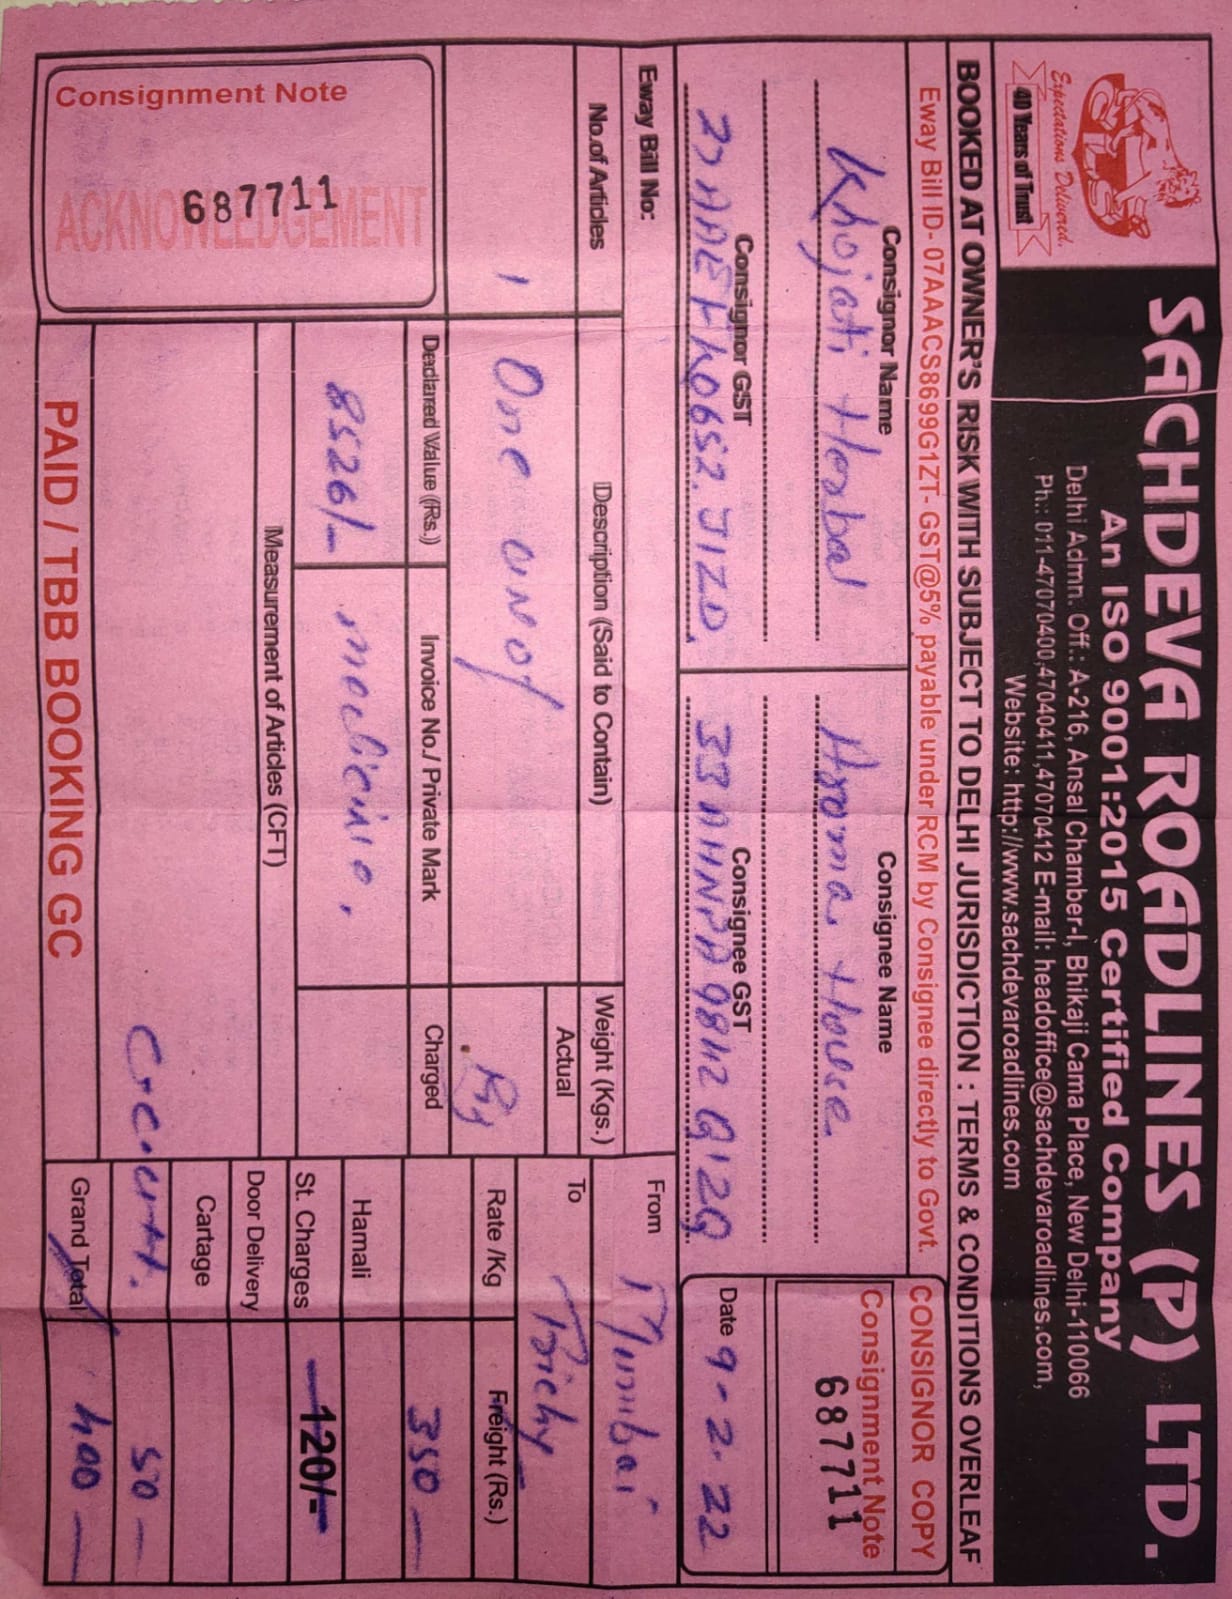 SACHDEVA ROADLINES (P) LTD.
An ISO 9001:2015 Certified Company
Delhi Admn. Off.: A-216, Ansal Chamber-I, Bhikaji Cama Place, New Delhi-110066
Ph.: 011-47070400,47040411,47070412 E-mail: headoffice@sachdevaroadlines.com,
Website: http://www.sachdevaroadlines.com
Expectations Delivered.
40 Years of Trust
BOOKED AT OWNER'S RISK WITH SUBJECT TO DELHI JURISDICTION : TERMS & CONDITIONS OVERLEAF
Eway Bill ID- 07AAACS8699G1ZT- GST@5% payable under RCM by Consignee directly to Govt.
CONSIGNOR COPY
Consignment Note
687711
Date 9-2-22
Consignor Name
Khojati Herbal
Consignee Name
Aroma House
Consignor GST
27AAEFK0652J1ZD
Consignee GST
Eway Bill No:
From Mumbai
To Trichy
No.of Articles
Description (Said to Contain)
Weight (Kgs.)
Actual
Rate /Kg
Freight (Rs.)
1
One
350
Declared Value (Rs.)
Invoice No./ Private Mark
Charged
Hamali
8526/-
medicine
St. Charges
120/-
Measurement of Articles (CFT)
Door Delivery
Cartage
50
Grand Total
400
Consignment Note
ACKNOWLEDGEMENT
687711
PAID / TBB BOOKING GC